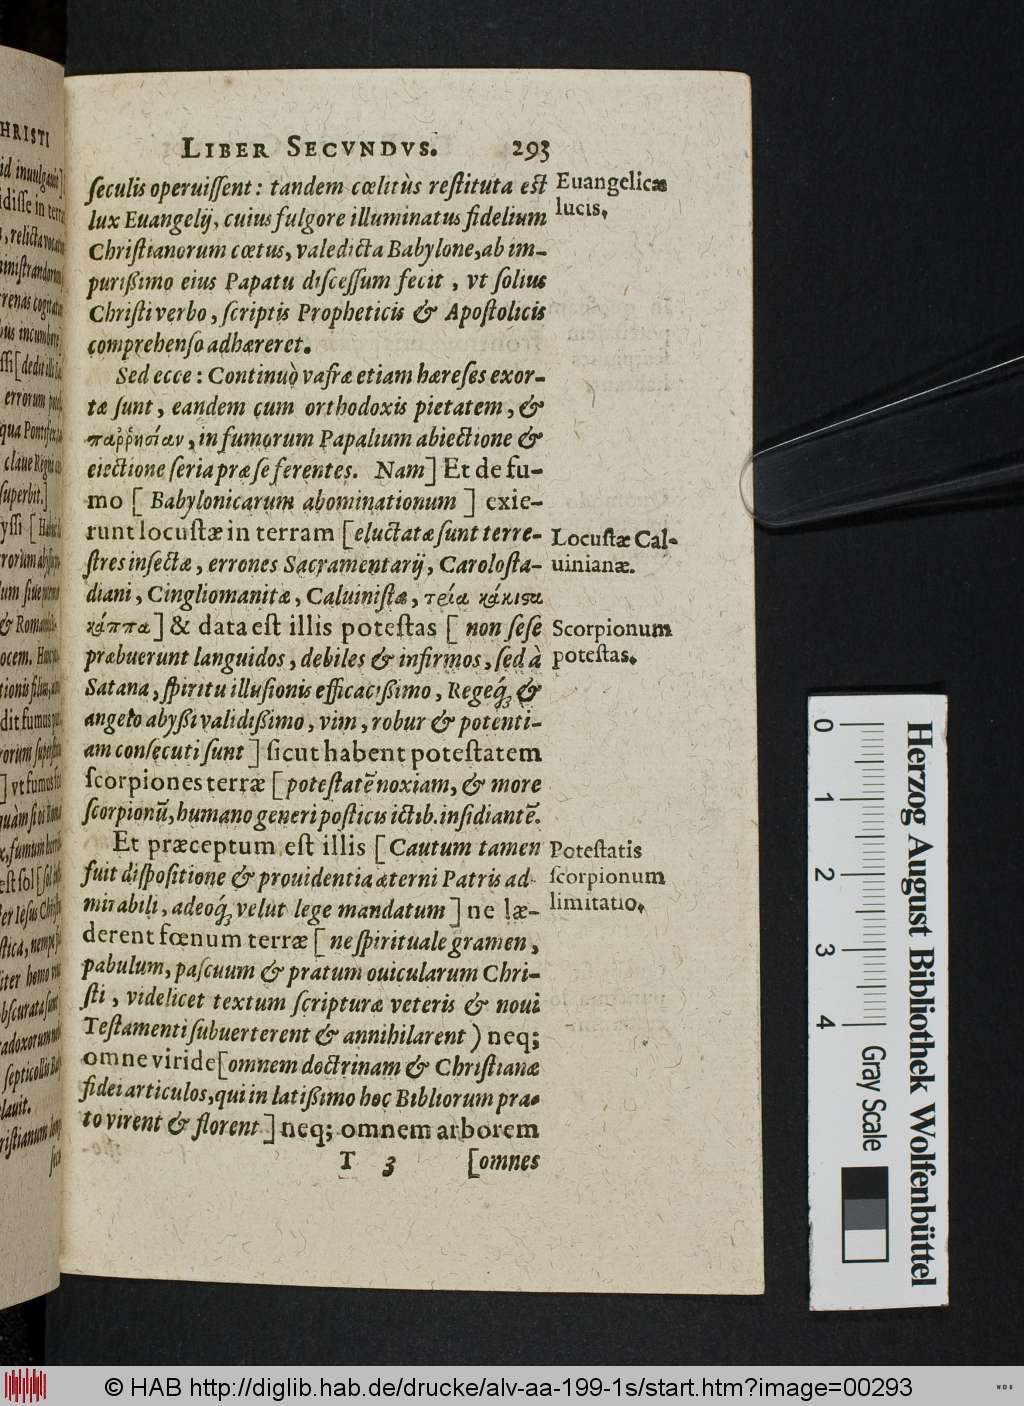 LIBER SECVNDVS. 293
ſeculis operuiſſent: tandem cœlitùs reſtituta eſt
lux Euangelij, cuius fulgore illuminatus fidelium
Chriſtianorum cœtus, valedicta Babylone, ab im-
purißimo eius Papatu diſceſſum fecit, vt ſolius
Chriſti verbo, ſcriptis Propheticis & Apoſtolicis
comprehenſo adhæreret.
Sed ecce: Continuò vafræ etiam hæreſes exor-
tæ ſunt, eandem cum orthodoxis pietatem, &
παῤῥησίαν, in fumorum Papalium abiectione &
eiectione ſeria præ ſe ferentes. Nam] Et de fu-
mo [Babylonicarum abominationum] exie-
runt locuſtæ in terram [eluctatæ ſunt terre-
ſtres inſectæ, errones Sacramentarij, Caroloſta-
diani, Cingliomanitæ, Caluiniſtæ, τρία κάκιστα
κάππα] & data eſt illis poteſtas [non ſeſe
præbuerunt languidos, debiles & infirmos, ſed à
Satana, ſpiritu illuſionis efficacißimo, Regeq́ꝫ &
angelo abyßi validißimo, vim, robur & potenti-
am conſecuti ſunt] ſicut habent poteſtatem
ſcorpiones terræ [poteſtatē noxiam, & more
ſcorpionū, humano generi poſticis ictib. inſidiantē.
Et præceptum eſt illis [Cautum tamen
fuit diſpoſitione & prouidentia æterni Patris ad-
mirabili, adeoq́ꝫ velut lege mandatum] ne læ-
derent fœnum terræ [ne ſpirituale gramen,
pabulum, paſcuum & pratum ouicularum Chri-
ſti, videlicet textum ſcripturæ veteris & noui
Teſtamenti ſubuerterent & annihilarent) neq;
omne viride [omnem doctrinam & Chriſtianæ
fidei articulos, qui in latißimo hoc Bibliorum pra-
to virent & florent] neq; omnem arborem
T 3 [omnes
Euangelicæ
lucis.
Locuſtæ Cal-
uinianæ.
Scorpionum
poteſtas.
Poteſtatis
ſcorpionum
limitatio.
HRISTI
0 1 2 3 4
Herzog August Bibliothek Wolfenbüttel
Gray Scale
© HAB http://diglib.hab.de/drucke/alv-aa-199-1s/start.htm?image=00293